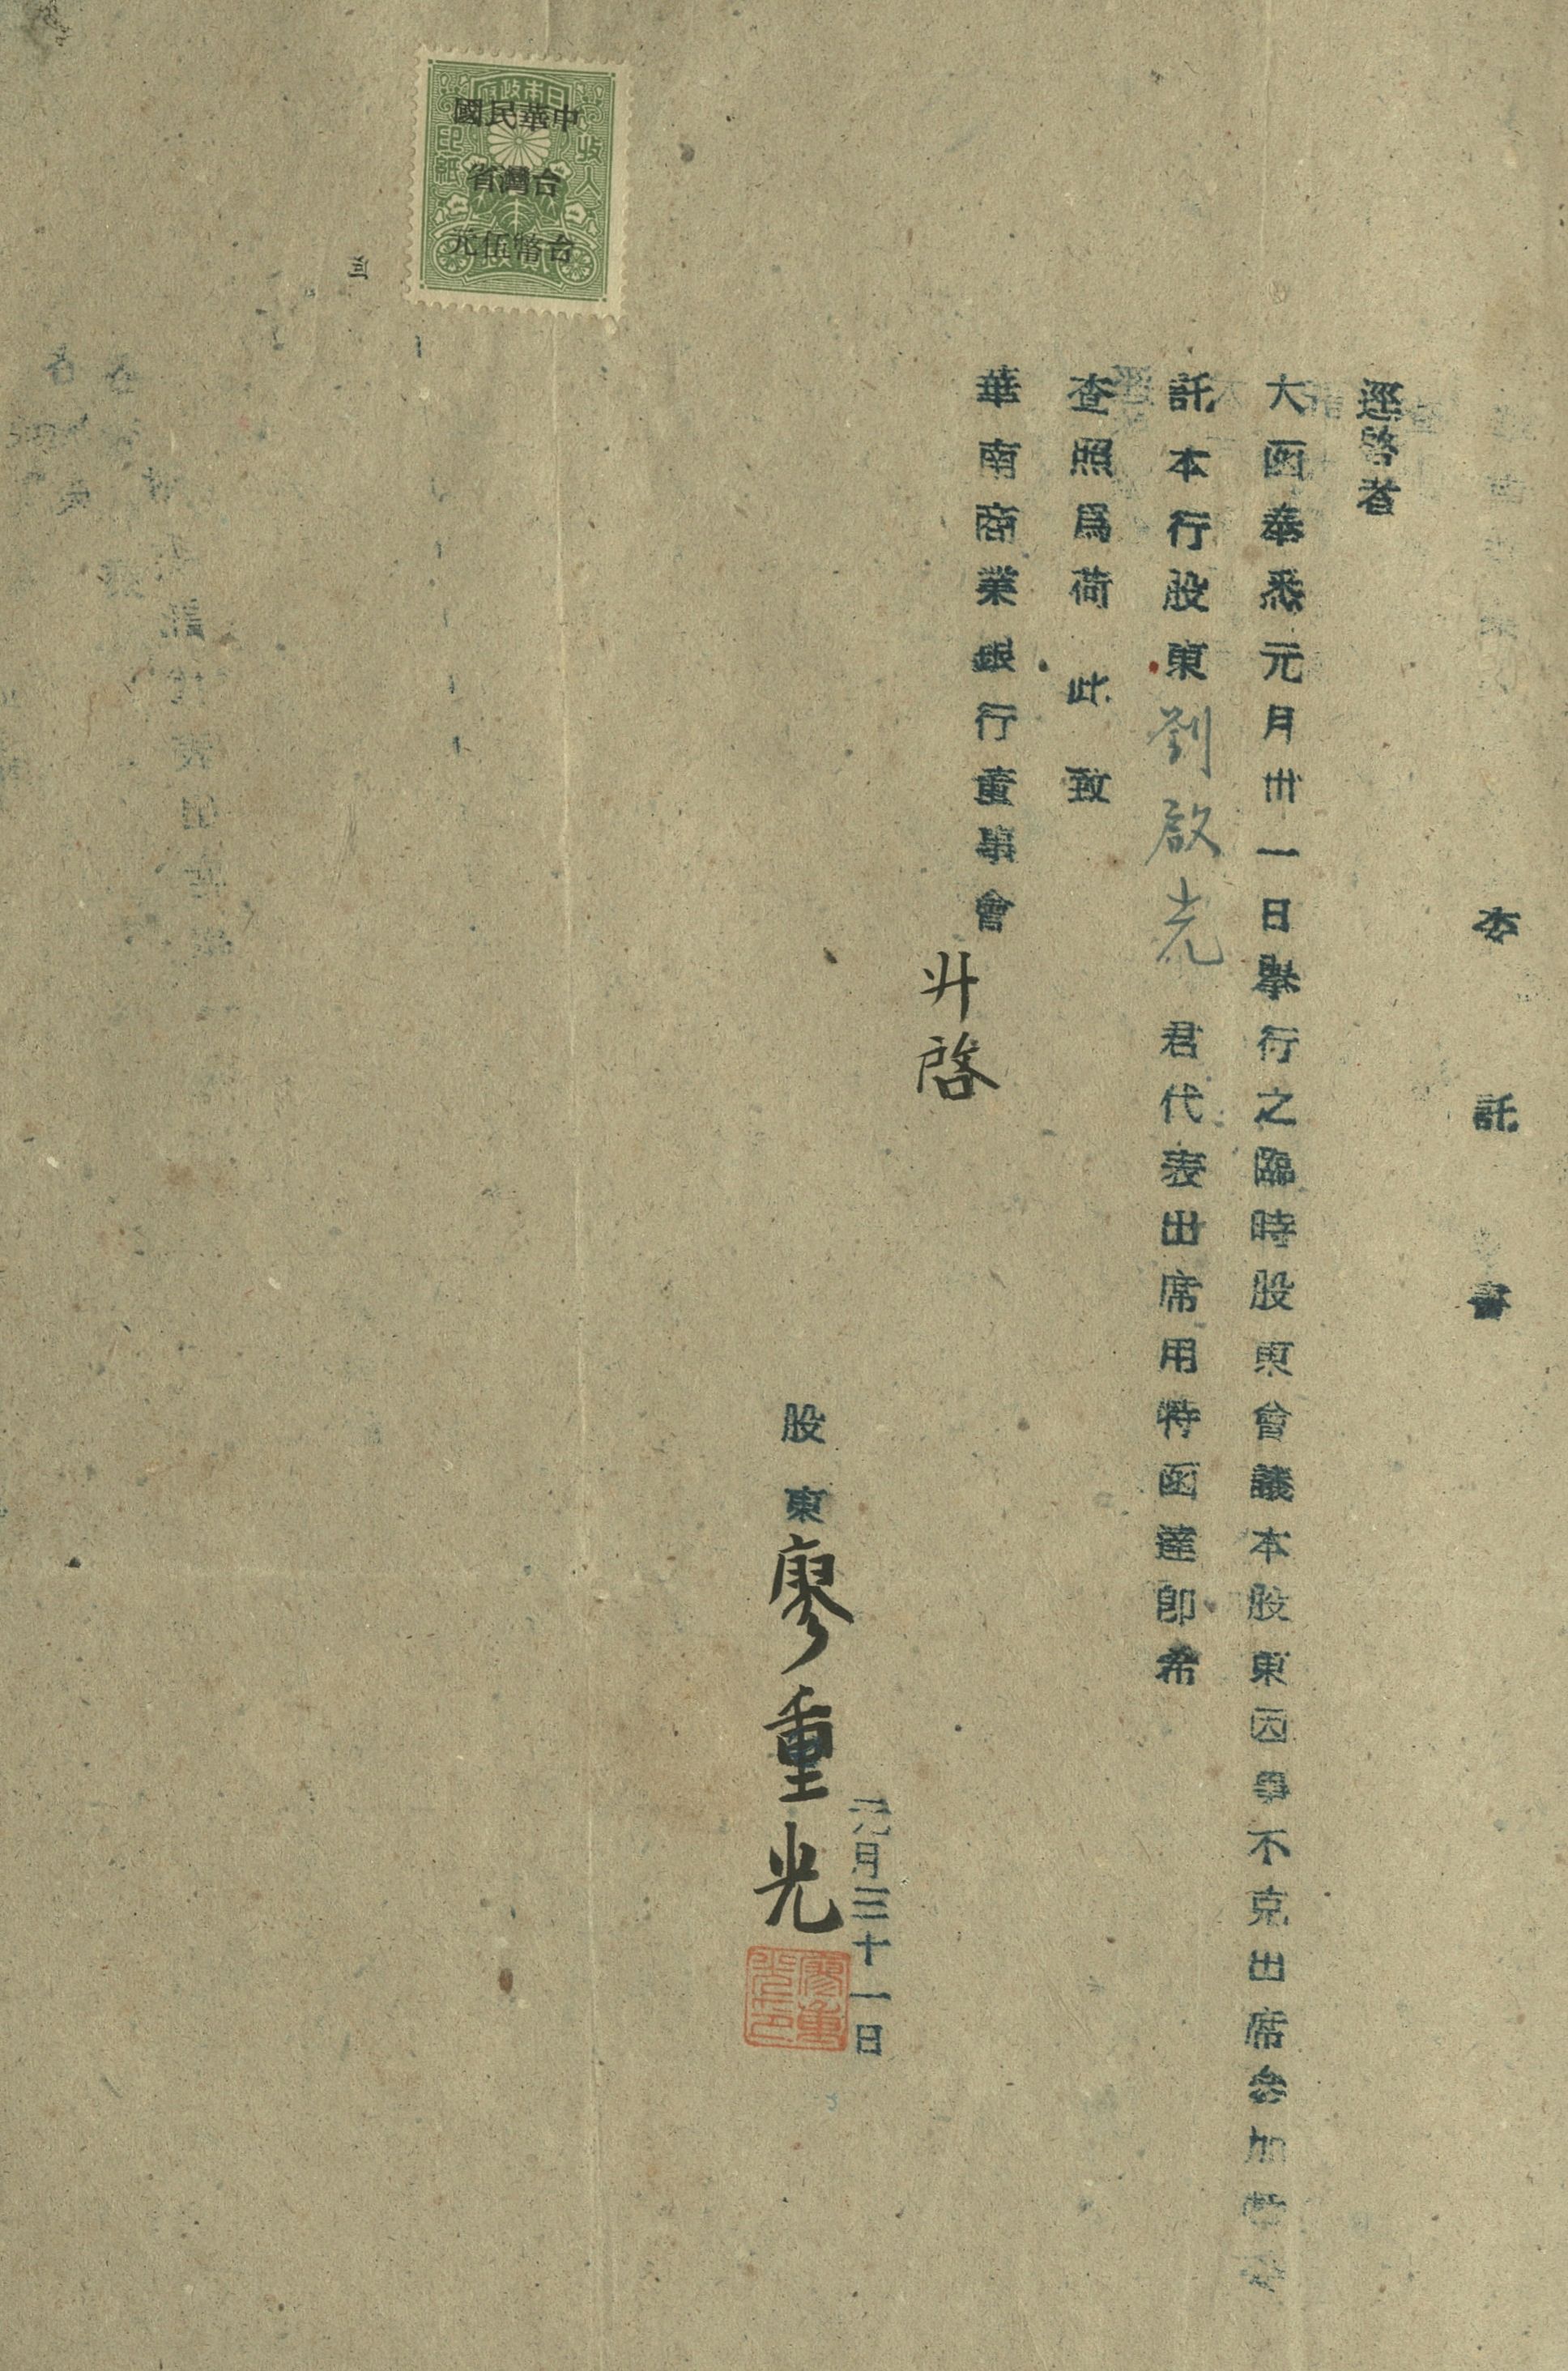 委託書
逕啓者
大函奉悉元月卅一日舉行之臨時股東會議本股東因事不克出席參加特委
託本行股東劉啟光 君代表出席用特函達卽希
查照爲荷 此致
華南商業銀行董事會
升啓
元月三十一日
股東廖重光
廖重光印
中華民國
台灣省
台幣伍元
收入
印紙